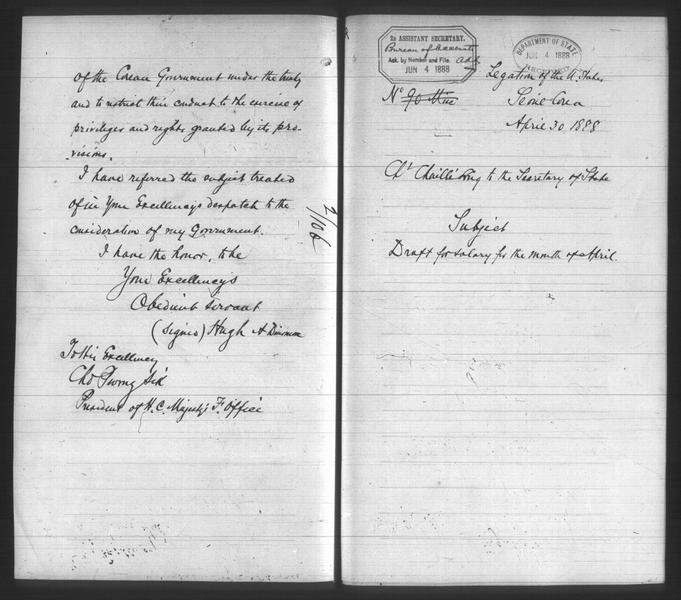 of the Corean Government under the treaty
and to restrict their conduct to the exercise of
privileges and rights granted by its pro-
visions.
I have referred the subject treated
of in Your Excellency's despatch to the
consideration of my Government.
I have the honor, to be
Your Excellency's
Obedient servant
(signed) Hugh A Dinsmore
To His Excellency
Cho Pyong Sik
President of H. C. Majesty's F. Office
2/106
2D ASSISTANT SECRETARY.
Bureau of Accounts
Ack. by Number and File.
JUN 4 1888
DEPARTMENT OF STATE
JUN 4 1888
Legation of the U. States
No 90 Misc
Seoul Corea
April 30 1888
Ch. Chaillé Long to the Secretary of State
Subject
Draft for salary for the month of April.